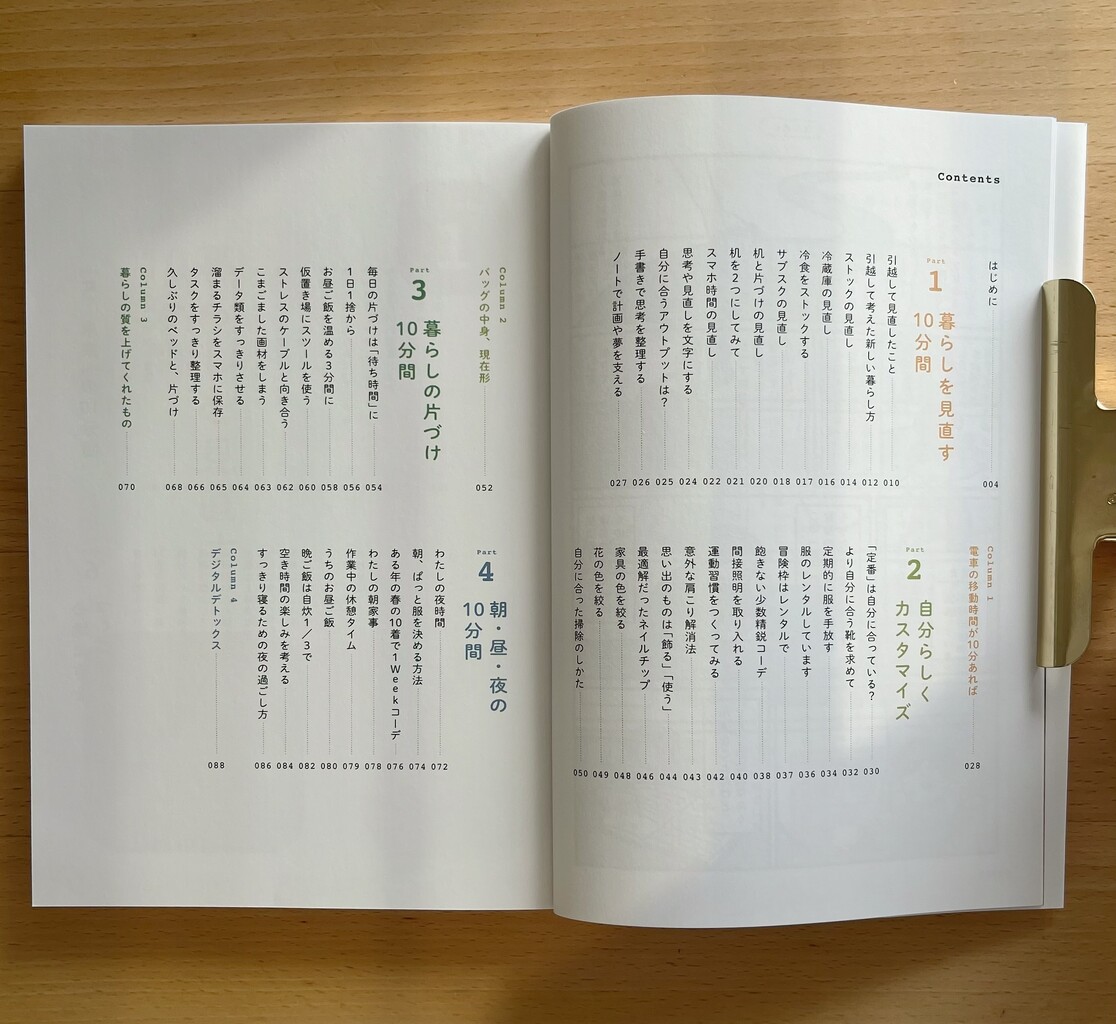 Contents
はじめに 004
Part
1
暮らしを見直す
10分間
引越して見直したこと 010
引越して考えた新しい暮らし方 012
ストックの見直し 014
冷蔵庫の見直し 016
冷食をストックする 017
サブスクの見直し 018
机と片づけの見直し 020
机を2つにしてみて 021
スマホ時間の見直し 022
思考や見直しを文字にする 024
自分に合うアウトプットは？ 025
手書きで思考を整理する 026
ノートで計画や夢を支える 027
Column 1
電車の移動時間が10分あれば 028
Part
2
自分らしく
カスタマイズ
「定番」は自分に合っている？ 030
より自分に合う靴を求めて 032
定期的に服を手放す 034
服のレンタルしています 036
冒険枠はレンタルで 037
飽きない少数精鋭コーデ 038
間接照明を取り入れる 040
運動習慣をつくってみる 042
意外な肩こり解消法 043
思い出のものは「飾る」「使う」 044
最適解だったネイルチップ 046
家具の色を絞る 048
花の色を絞る 049
自分に合った掃除のしかた 050
Column 2
バッグの中身、現在形 052
Part
3
暮らしの片づけ
10分間
毎日の片づけは「待ち時間」に 054
1日1捨から 056
お昼ご飯を温める3分間に 058
仮置き場にスツールを使う 060
ストレスのケーブルと向き合う 062
こまごました画材をしまう 063
データ類をすっきりさせる 064
溜まるチラシをスマホに保存 065
タスクをすっきり整理する 066
久しぶりのベッドと、片づけ 068
Column 3
暮らしの質を上げてくれたもの 070
Part
4
朝・昼・夜の
10分間
わたしの夜時間 072
朝、ぱっと服を決める方法 074
ある年の春の10着で1Weekコーデ 076
わたしの朝家事 078
作業中の休憩タイム 079
うちのお昼ご飯 080
晩ご飯は自炊1/3で 082
空き時間の楽しみを考える 084
すっきり寝るための夜の過ごし方 086
Column 4
デジタルデトックス 088